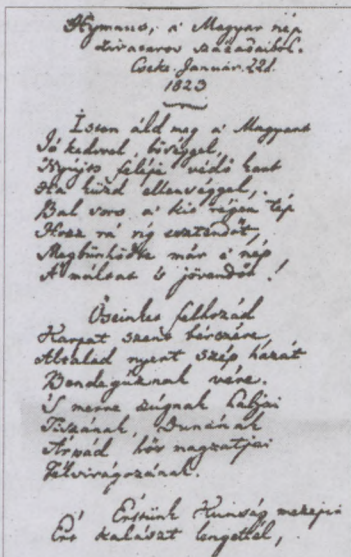 Hymnus, a' Magyar nép
zivataros századaiból.
Cseke. Január. 22d.
1823
Isten áld meg a' Magyart
Jó kedvvel, bőséggel,
Nyújts feléje védő kart
Ha küzd ellenséggel,
Bal sors a' kit régen tép
Hozz rá víg esztendőt,
Megbűnhődte már e' nép
A' multat 's jövendőt!
Őseinket felhozád
Kárpát szent bérczére,
Általad nyert szép hazát
Bendegúznak vére.
'S merre zúgnak habjai
Tiszának, Dunának
Árpád hős magzatjai
Felvirágozának.
Értünk Kunság mezejin
Ért kalászt lengettél,